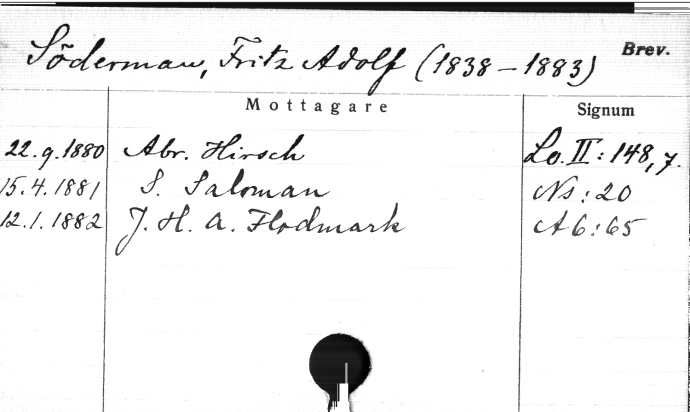 Söderman, Fritz Adolf (1838–1883) Brev.
Mottagare Signum
22.9.1880 Abr. Hirsch Lo. II: 148,7.
15.4.1881 S. Saloman Ns: 20
12.1.1882 J. H. A. Flodmark A6:65